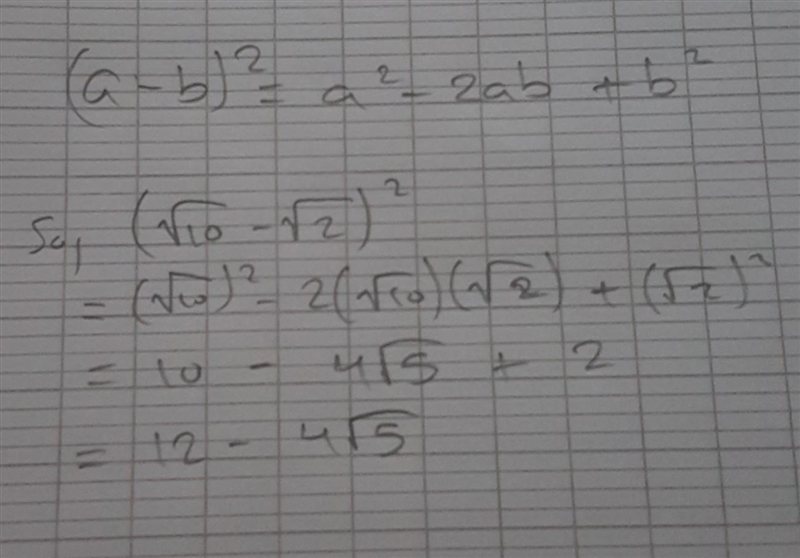 (a - b)² = a² - 2ab + b²
So, (√10 - √2)²
= (√10)² - 2(√10)(√2) + (√2)²
= 10 - 4√5 + 2
= 12 - 4√5